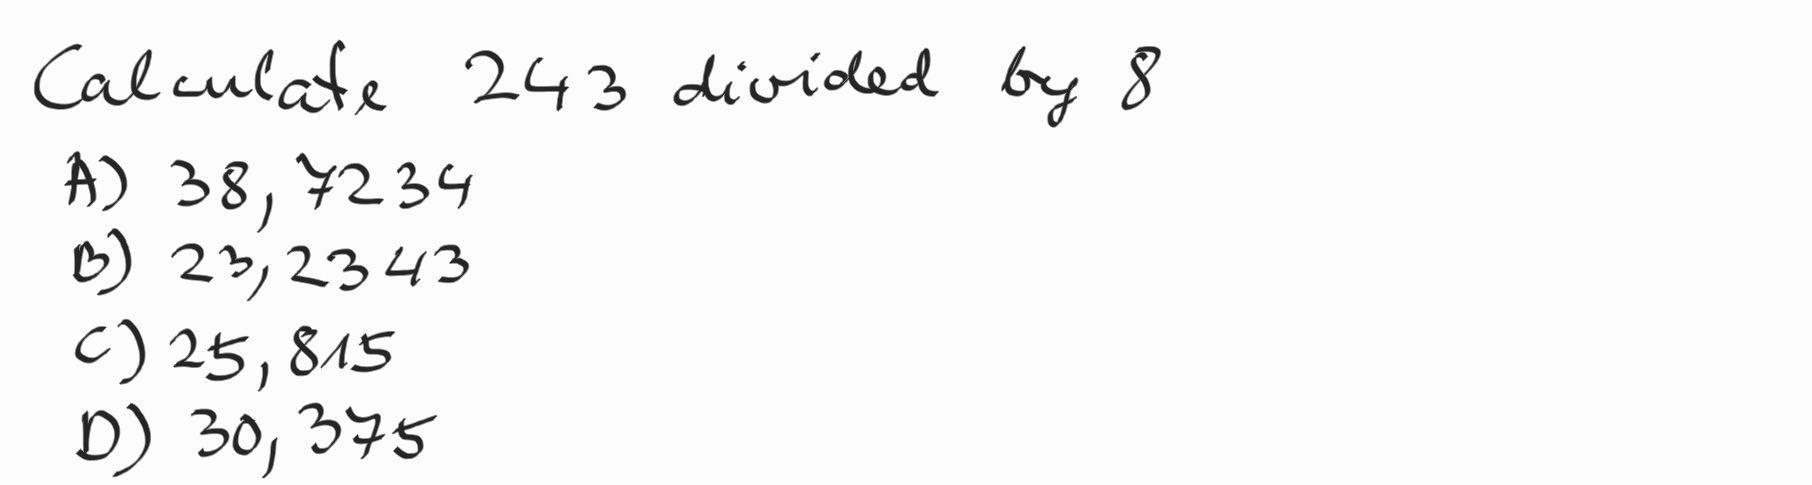 Calculate 243 divided by 8
A) 38,7234
B) 23,2343
C) 25,815
D) 30,375